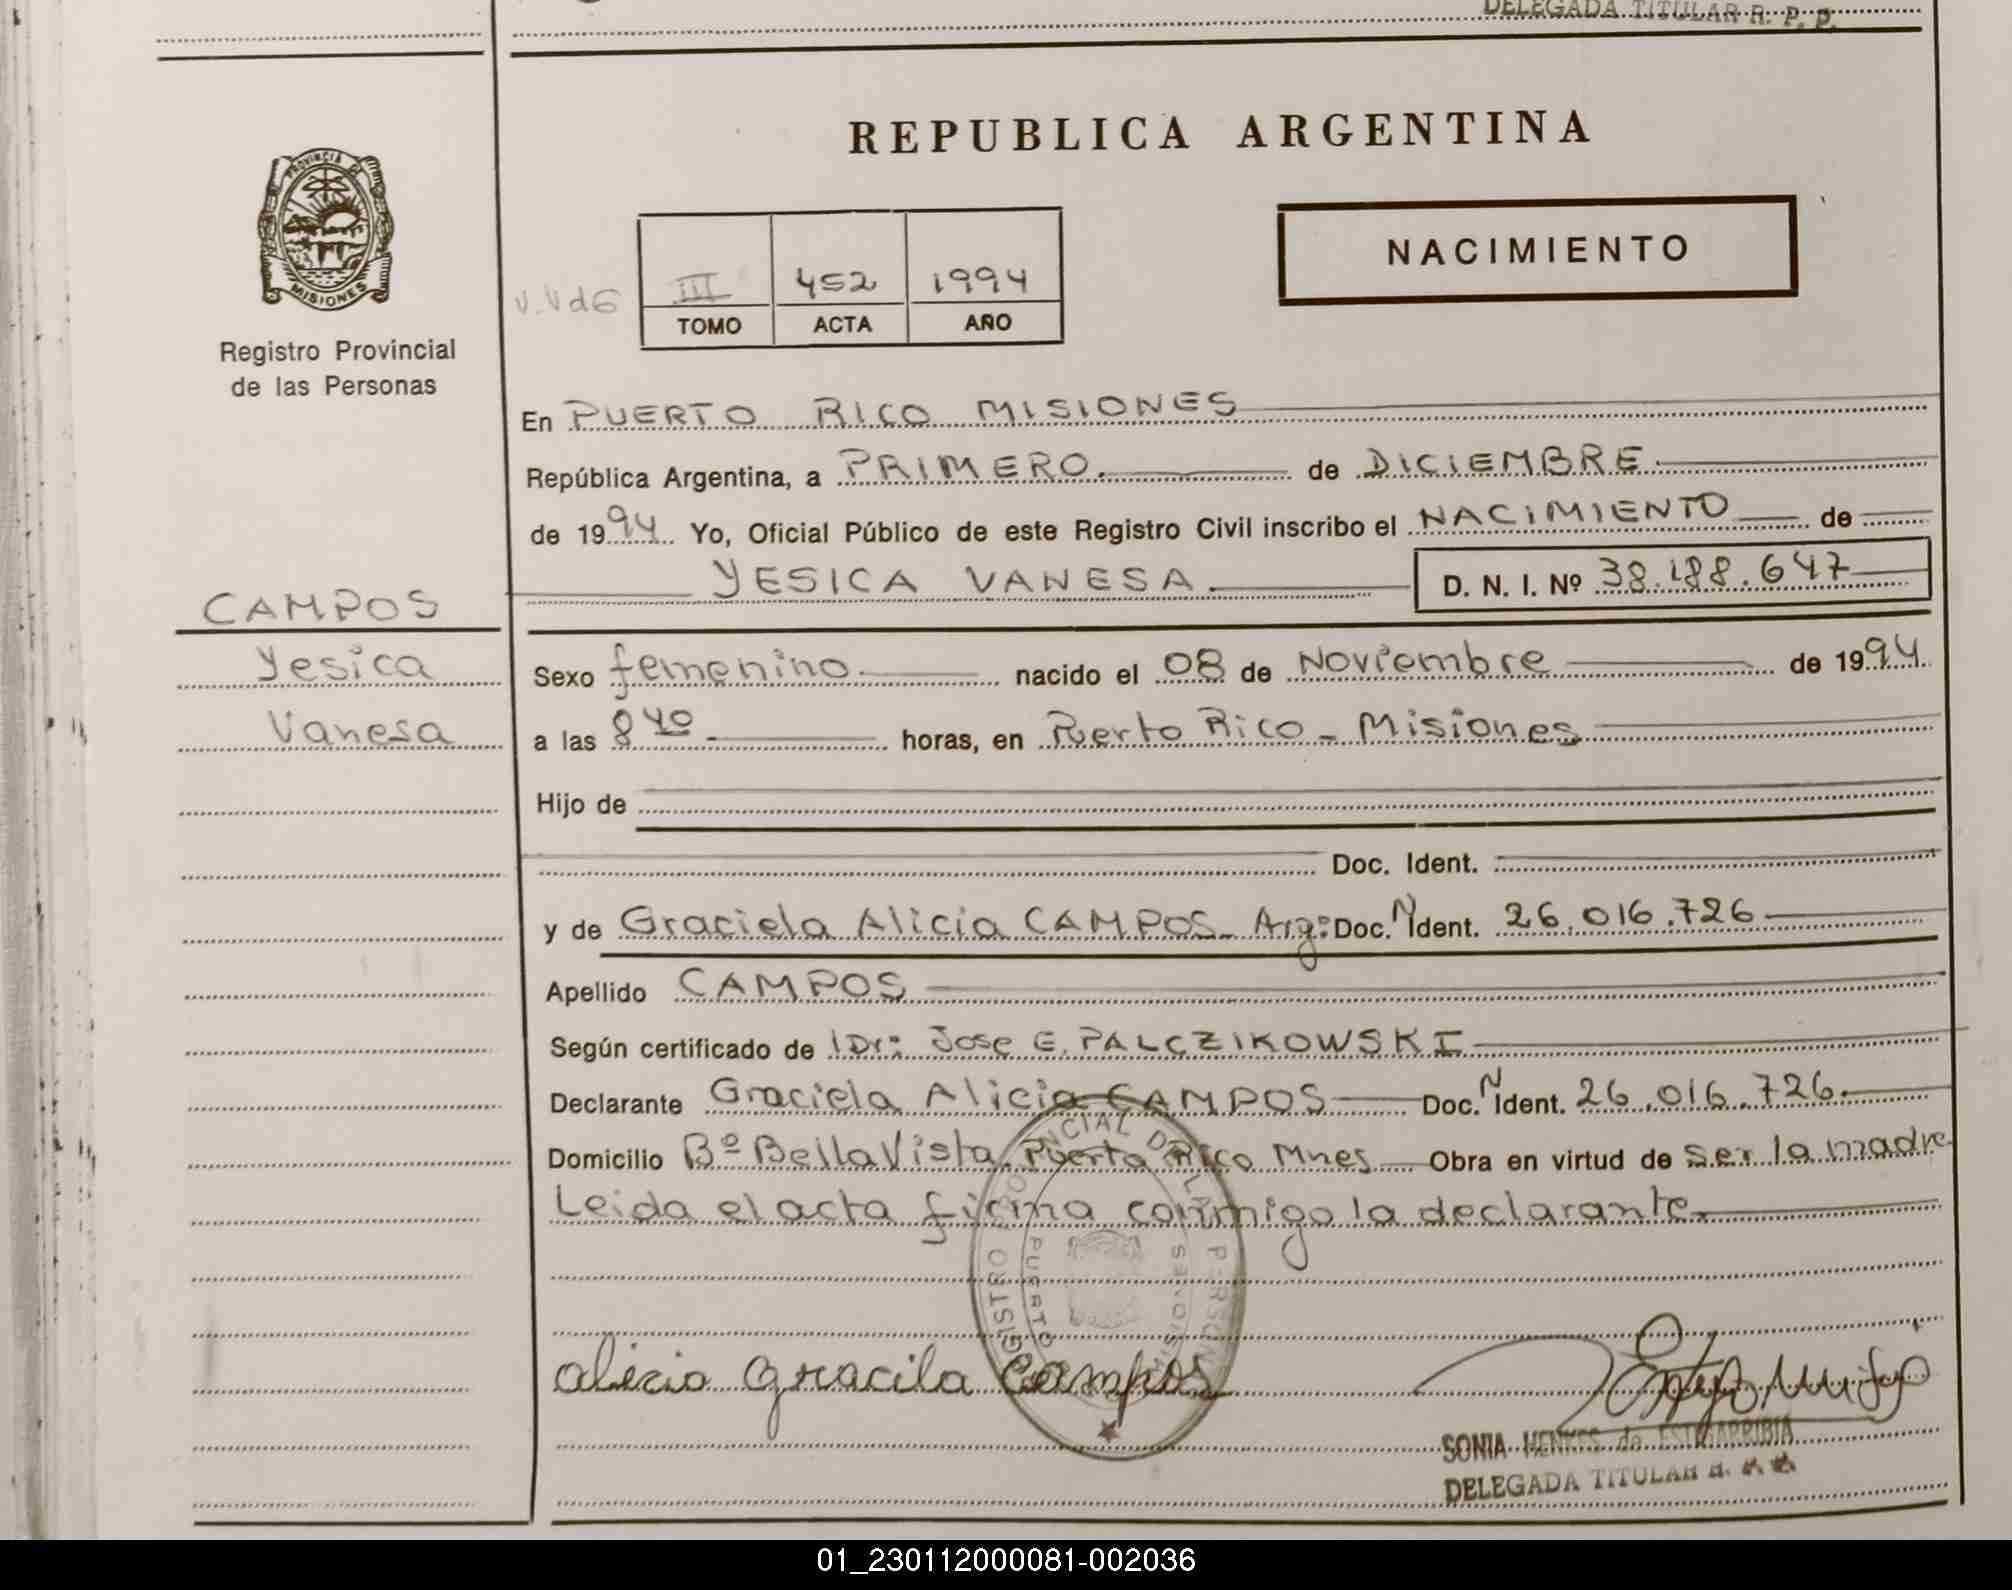 DELEGADA TITULAR R. P. P.
REPUBLICA ARGENTINA
PROVINCIA DE
MISIONES
Registro Provincial
de las Personas
NACIMIENTO
III 452 1994
TOMO ACTA AÑO
En PUERTO RICO MISIONES
República Argentina, a PRIMERO. de DICIEMBRE
de 1994 Yo, Oficial Público de este Registro Civil inscribo el NACIMIENTO de
YESICA VANESA D. N. I. Nº 38.188.647
CAMPOS
Yesica
Vanesa
Sexo femenino nacido el 08 de Noviembre de 1994
a las 8 40 horas, en Puerto Rico - Misiones
Hijo de
Doc. Ident.
y de Graciela Alicia CAMPOS - Arg: Doc. N Ident. 26.016.726
Apellido CAMPOS
Según certificado de Dr: Jose E. PALCZIKOWSKI
Declarante Graciela Alicia CAMPOS Doc. N Ident. 26.016.726.
Domicilio Bº Bella Vista. Puerto Rico Mnes Obra en virtud de ser la madre
Leida el acta firma conmigo la declarante.
REGISTRO PROVINCIAL DE LAS PERSONAS
PUERTO MISIONES
Alicia Gracila Campos
SONIA HENKES de ESTIGARRIBIA
DELEGADA TITULAR R.
01_230112000081-002036